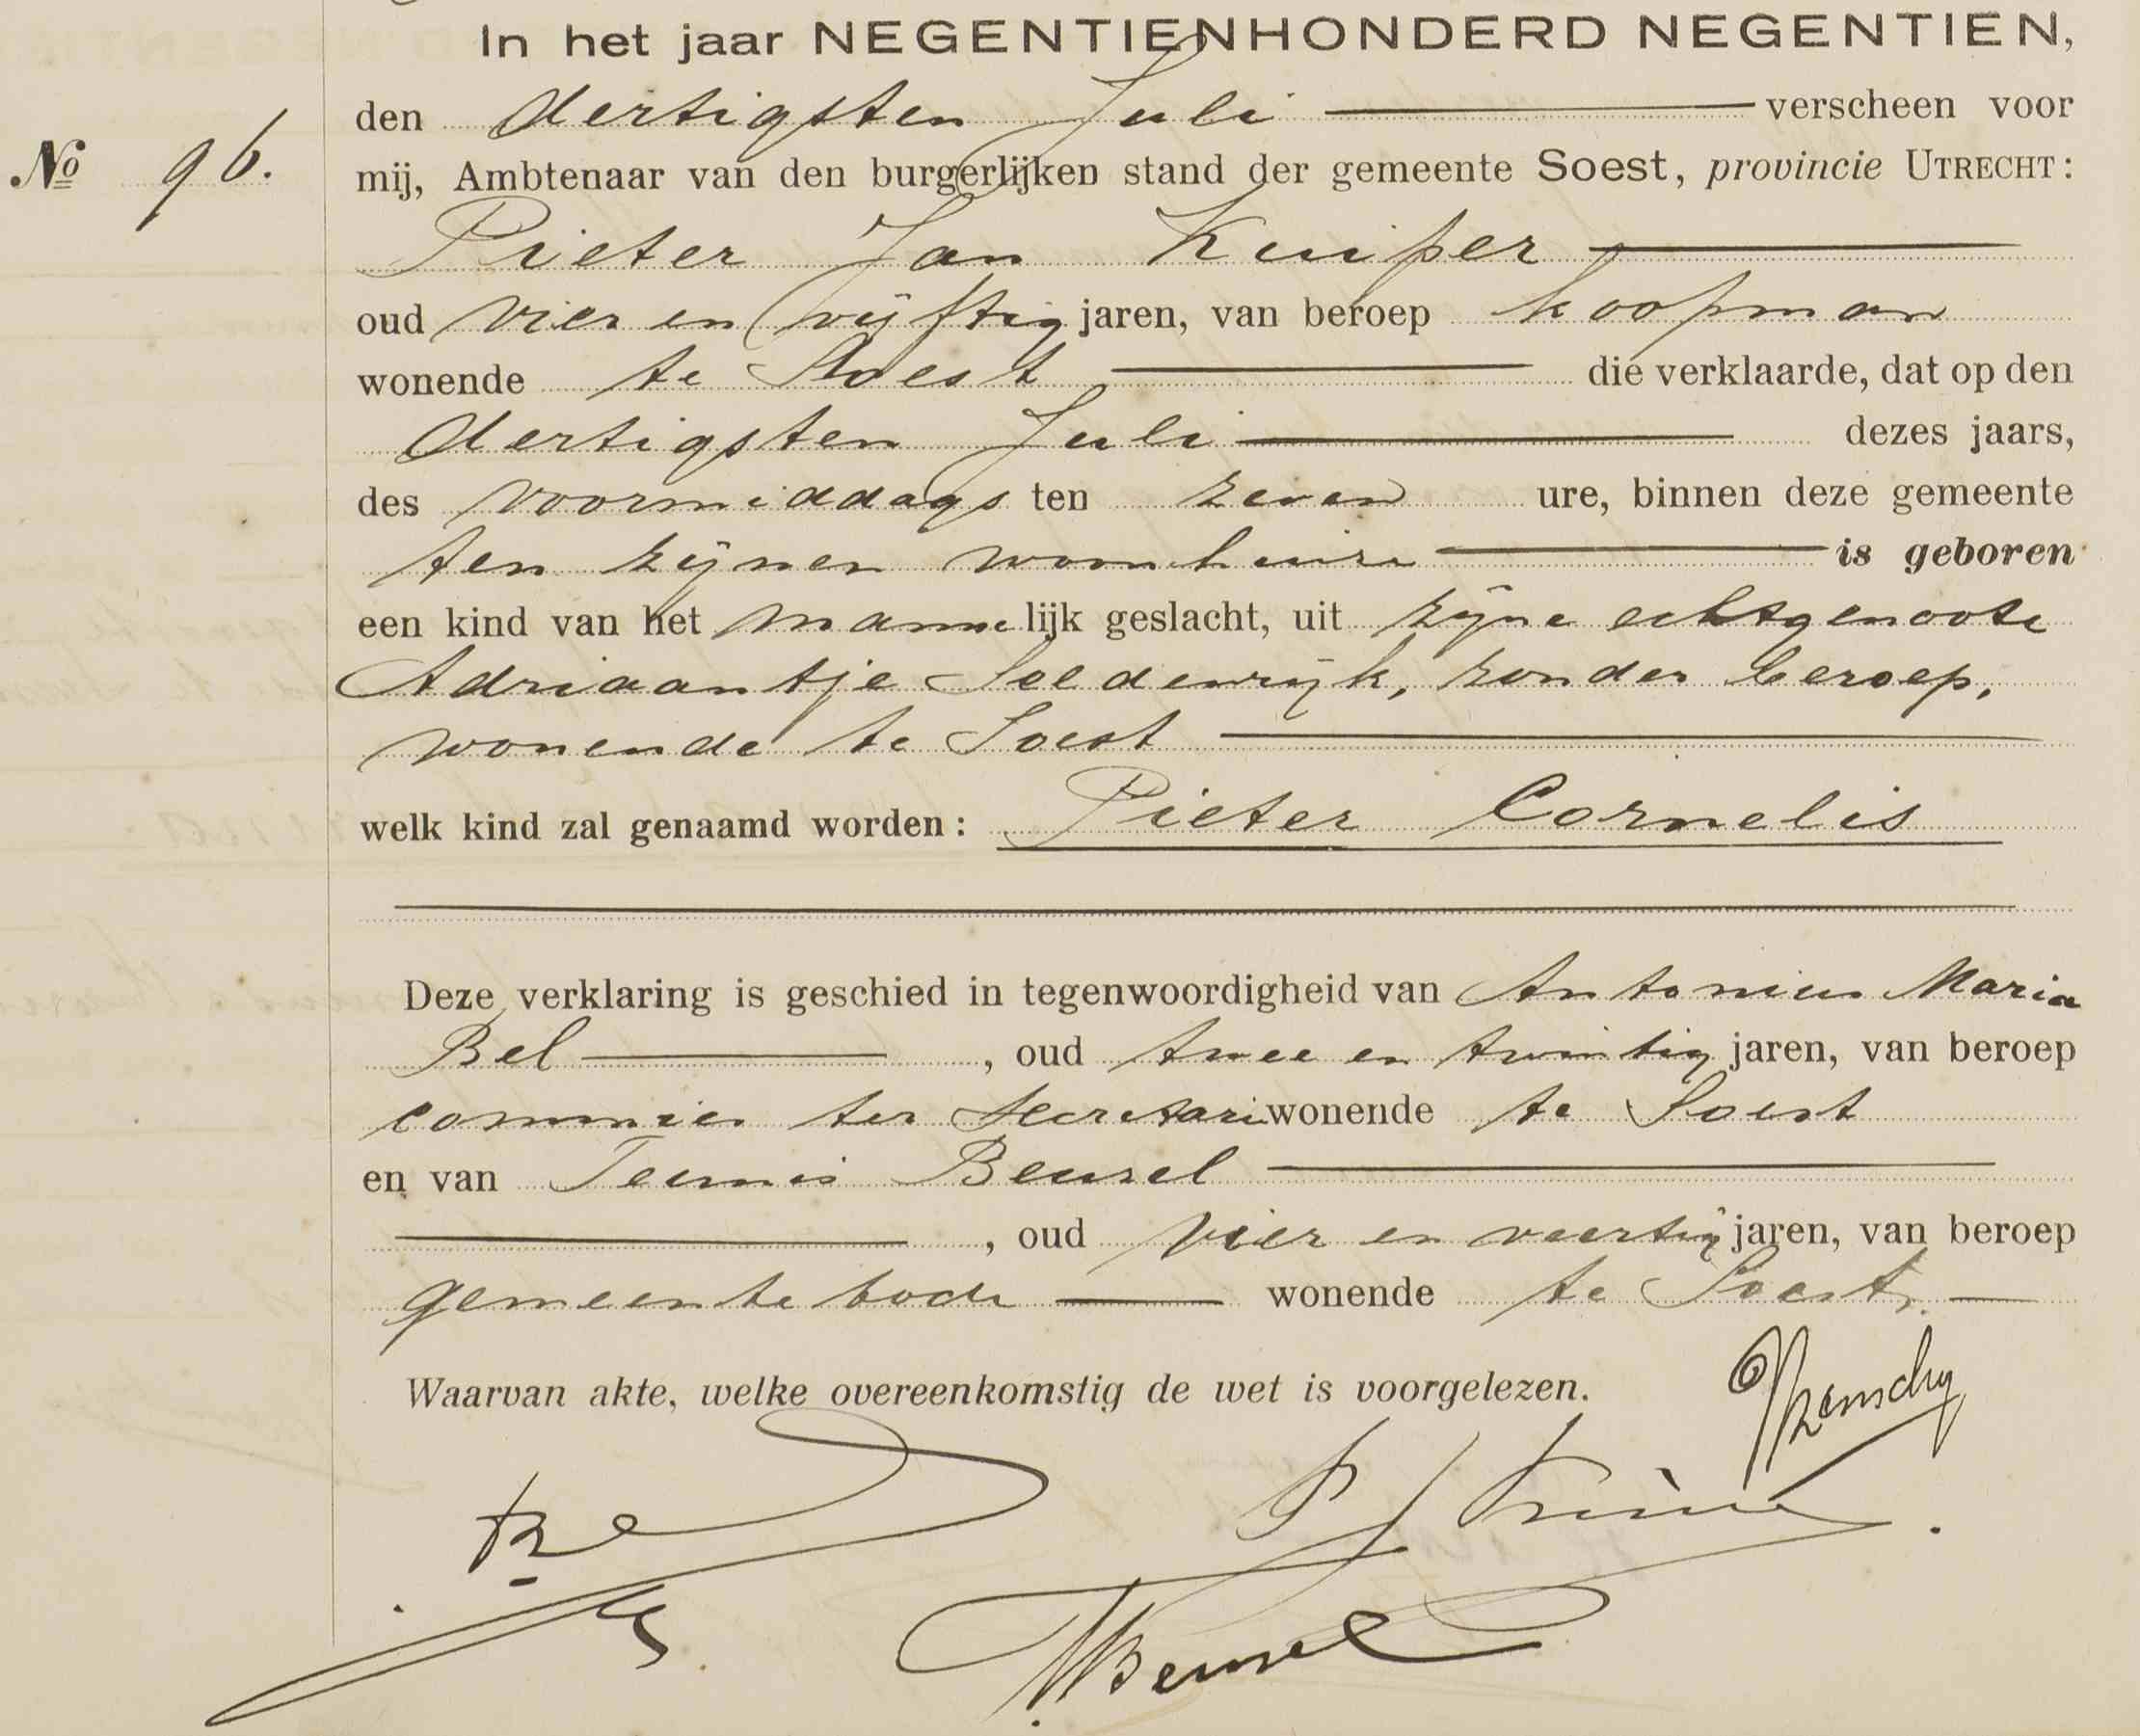 In het jaar NEGENTIENHONDERD NEGENTIEN,
den dertigsten Juli verscheen voor
No 96.
mij, Ambtenaar van den burgerlijken stand der gemeente Soest, provincie UTRECHT:
Pieter Jan Kuiper
oud vier en vijftig jaren, van beroep koopman
wonende te Soest die verklaarde, dat op den
dertigsten Juli dezes jaars,
des voormiddags ten zeven ure, binnen deze gemeente
ten zijnen woonhuize is geboren
een kind van het mannelijk geslacht, uit zijne echtgenoote
Adriaantje Seldenrijk, zonder beroep,
wonende te Soest
welk kind zal genaamd worden: Pieter Cornelis
Deze verklaring is geschied in tegenwoordigheid van Antonius Maria
Bel, oud twee en twintig jaren, van beroep
commies ter Secretari wonende te Soest
en van Teunis Beusel
, oud vier en veertig jaren, van beroep
gemeentebode wonende te Soest.
Waarvan akte, welke overeenkomstig de wet is voorgelezen.
Beusel